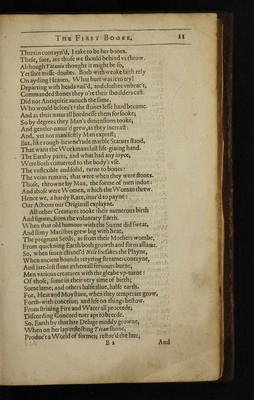 THE FIRST BOOKE. 11
Therein contayn'd, I take to be her bones.
These, sure, are those we should behind vs throw.
Although Titania thought it might be so,
Yet shee misse-doubts. Both with weake faith rely
On ayding Heauen. What hurt was it to try!
Departing with heads vail'd, and clothes vnbrac't,
Commanded stones they o're their shoulders cast.
Did not Antiquitie auouch the same,
Who would beleeu't? the stones lesse hard became.
And as their naturall hardnesse them forsooke;
So by degrees they Man's dimensions tooke;
And gentler-natur'd grew, as they increast:
And, yet not manifestly Man exprest;
But, like rough-hewne rude marble Statues stand,
That want the Workmans last life-giuing hand.
The Earthy parts, and what had any ioyce,
Were both conuerted to the body's vse.
The vnflexible and solid, turne to bones:
The veins remain, that were when they were stones.
Those, throwne by Man, the forme of men indue:
And those were Women, which the Woman threw.
Hence we, a hardy Race, inur'd to payne:
Our Actions our Originall explayne.
All other Creatures tooke their numerous birth
And figures, from the voluntary Earth.
When that old humour with the Sunne did sweat,
And slimy Marishes grew big with heat;
The pregnant Seeds, as from their Mothers wombe,
From quickning Earth both growth and form assume.
So, when seauen-chanel'd Nile forsakes the Playne,
When ancient bounds retyring streames contayne,
And late-left slime æthereall feruours burne,
Men various creatures with the gleabe vp-turne:
Of those, some in their very time of birth;
Some lame; and others halfe aliue, halfe earth.
For, Heat and Moysture, when they temperate grow,
Forth-with conceiue; and life on things bestow.
From striuing Fire and Water all proceede;
Discording Concord euer apt to breede.
So, Earth by that late Deluge muddy growne,
When on her lap reflecting Titan shone,
Produc't a World of formes; restor'd the late;
B 2 And